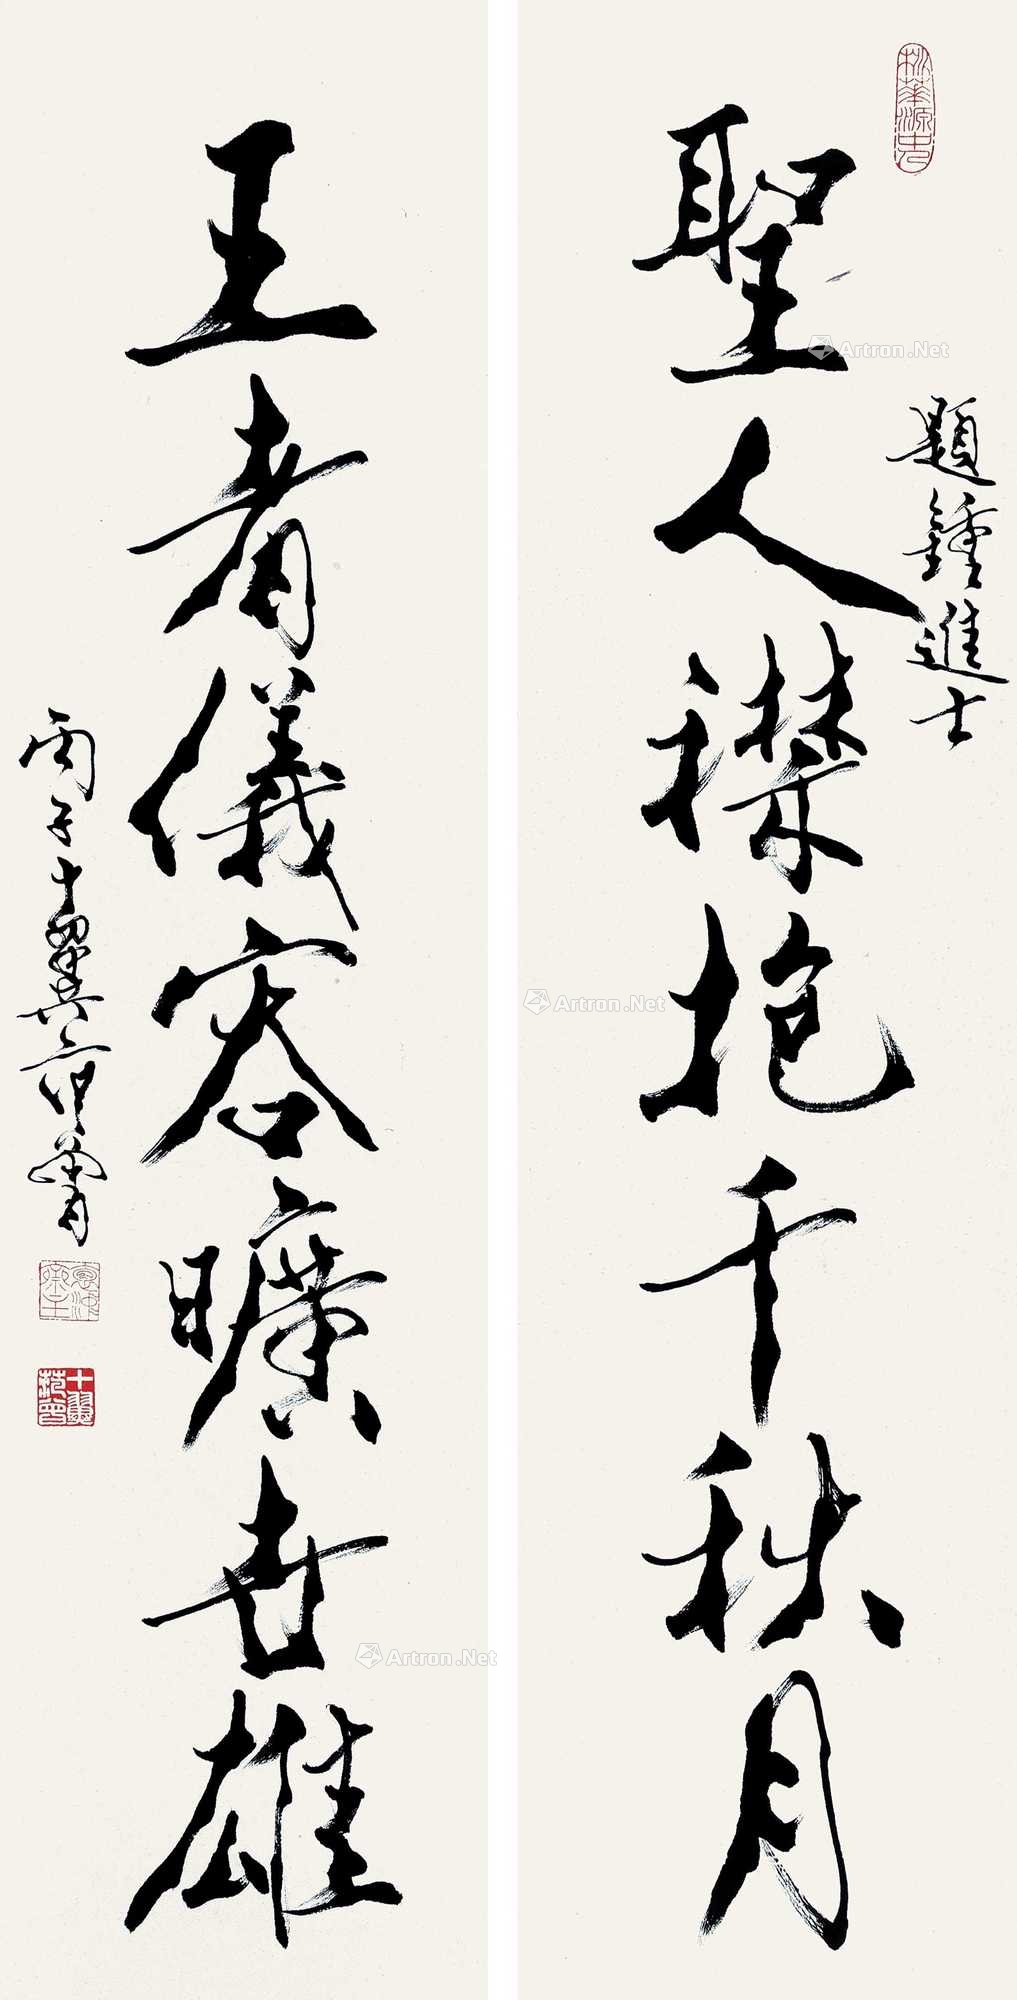 聖人襟抱千秋月
題鍾進士
王者儀容曠世雄
丙子十翼范曾
桃華源中人
十翼范曾
Artron.Net
Artron.Net
Artron.Net